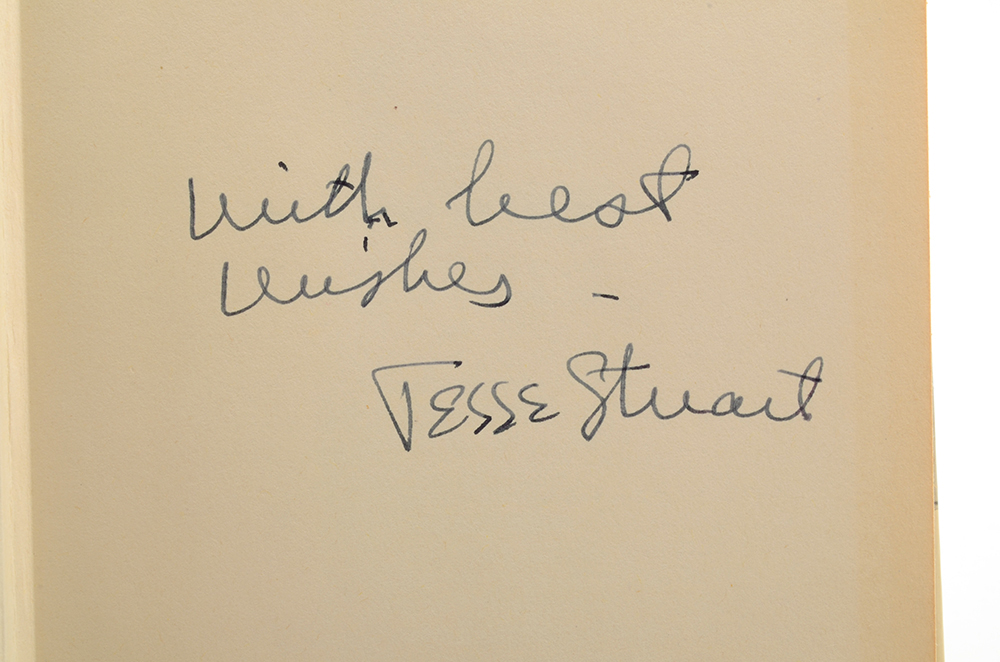 With best
wishes -
Jesse Stuart